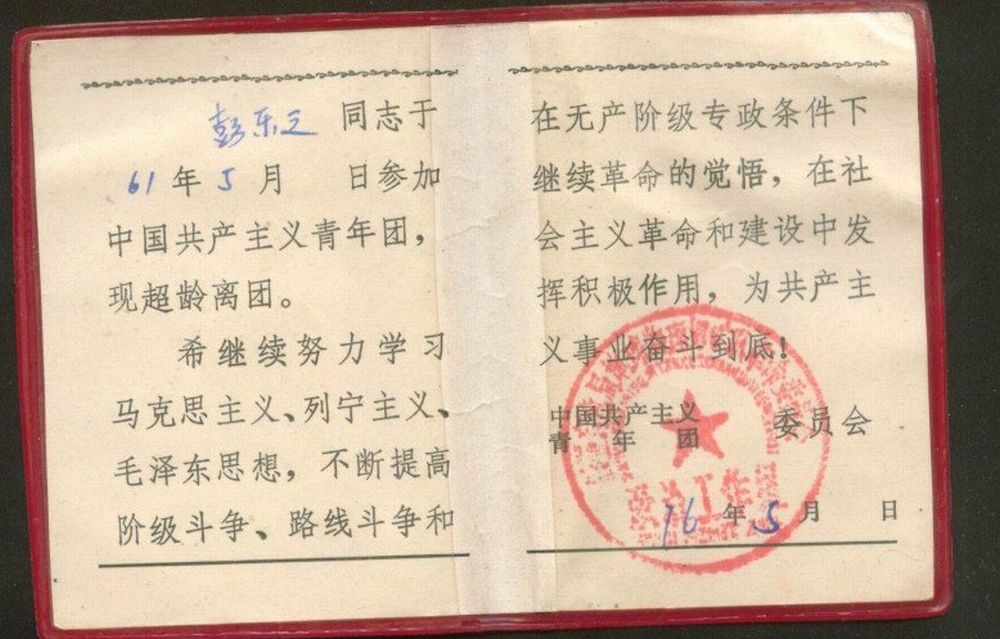 彭乐之 同志于
61年5月 日参加
中国共产主义青年团，
现超龄离团。
希继续努力学习
马克思主义、列宁主义、
毛泽东思想，不断提高
阶级斗争、路线斗争和
在无产阶级专政条件下
继续革命的觉悟，在社
会主义革命和建设中发
挥积极作用，为共产主
义事业奋斗到底！
中国共产主义
青年团 委员会
76年5月 日